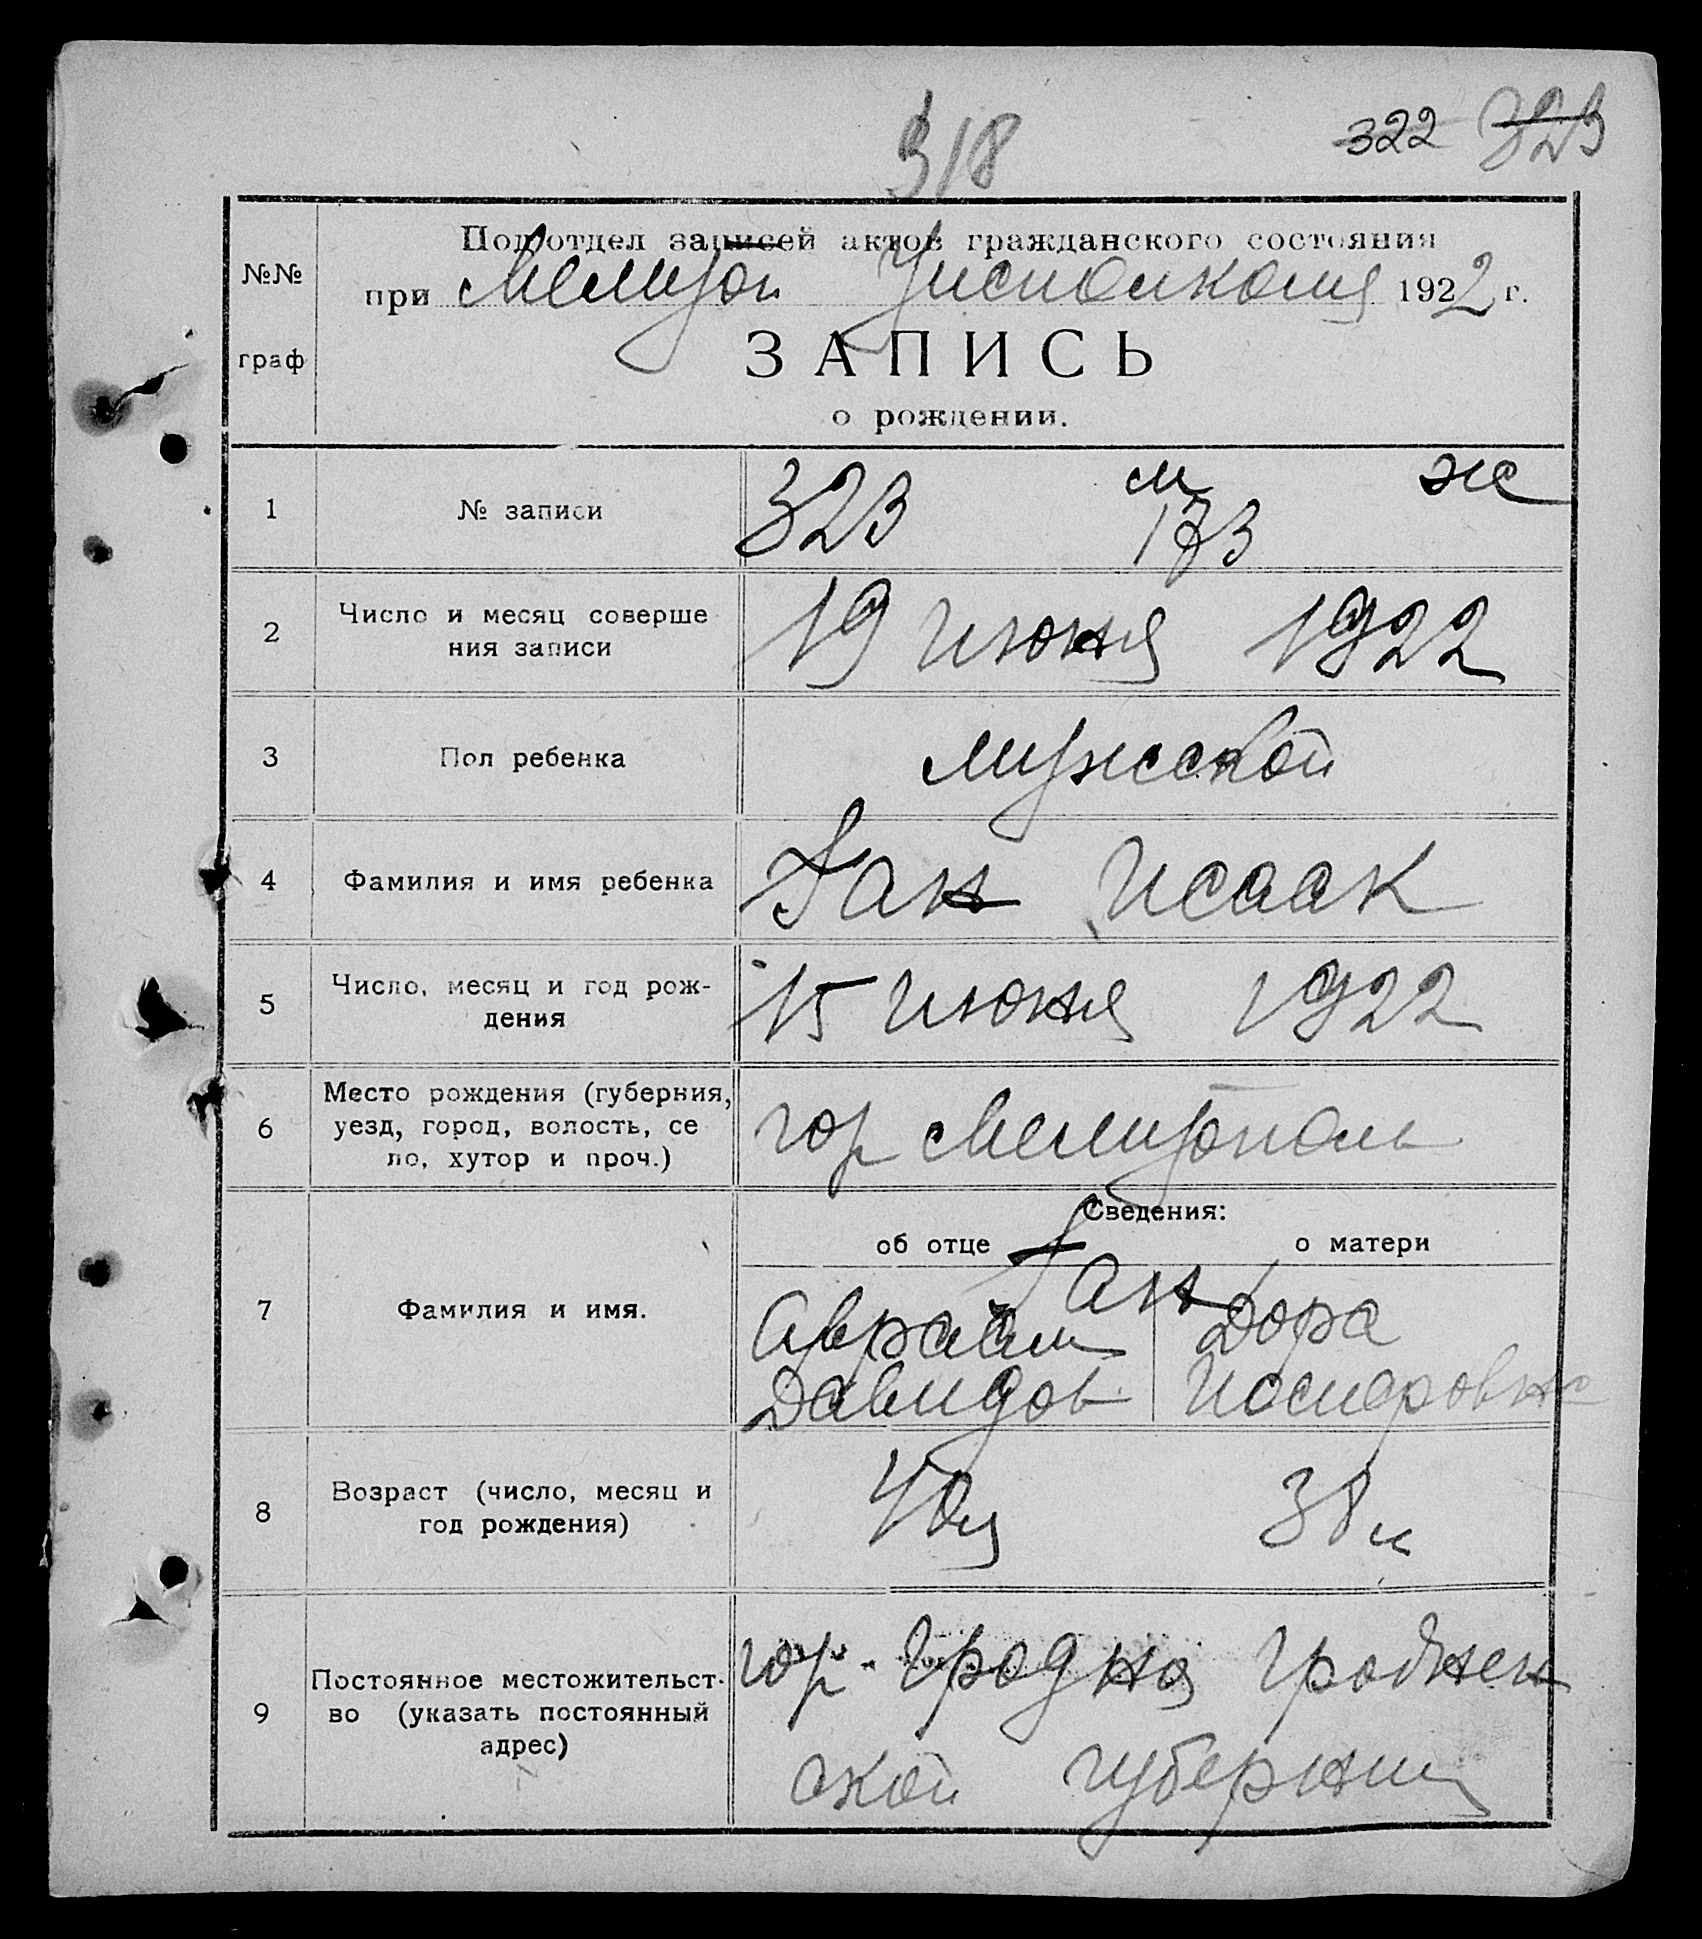 318
322 323
Подотдел записей актов гражданского состояния
при Мелитоп Уисполкома 1922 г.
№№
граф
ЗАПИСЬ
о рождении.
1 № записи 323 м 173 ж
2 Число и месяц соверше
ния записи 19 июня 1922
3 Пол ребенка мужской
4 Фамилия и имя ребенка Ган Исаак
5 Число, месяц и год рож-
дения 15 июня 1922
6 Место рождения (губерния,
уезд, город, волость, се
ло, хутор и проч.) гор Мелитополь
Сведения:
об отце о матери
Ган
7 Фамилия и имя. Авраам Дора
Давидов
8 Возраст (число, месяц и
год рождения) 40 38 л
9 Постоянное местожительст-
во (указать постоянный
адрес) гор. Гродна Гроднен
ской губернии